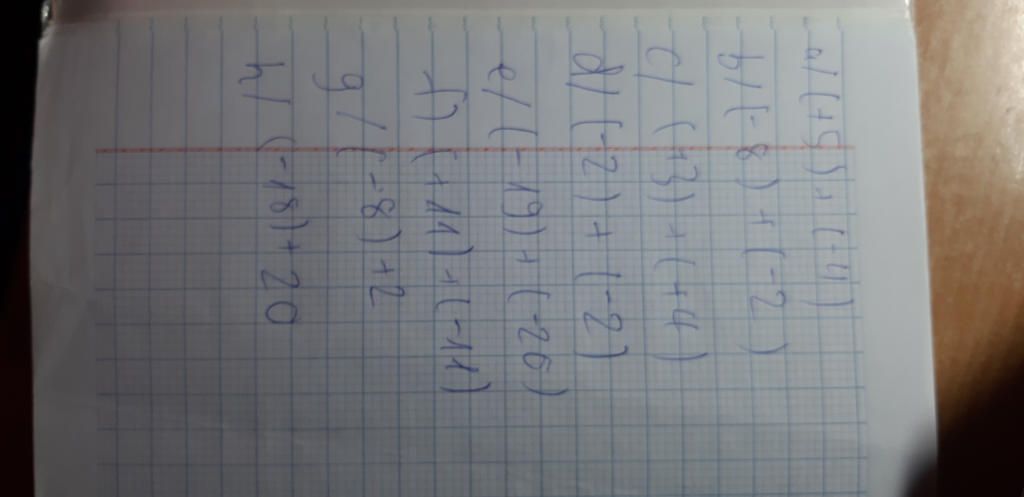 a/ (+5) + (-4)
b/ (-8) + (-2)
c/ (+3) + (+4)
d/ (-2) + (-2)
e/ (-19) + (-26)
f/ (+11) + (-11)
g/ (-8) + 2
h/ (-18) + 20